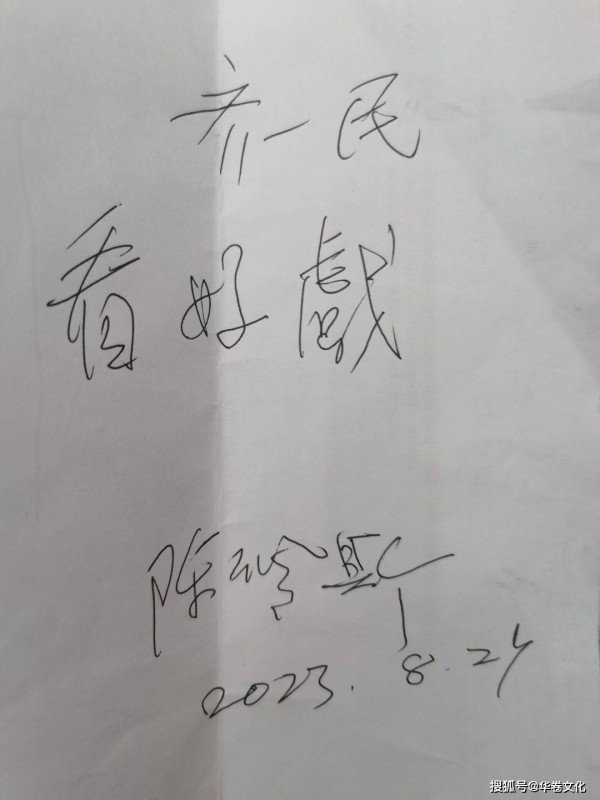 齐一民
看好戲
陈玲
2023.8.24
搜狐号@华卷文化